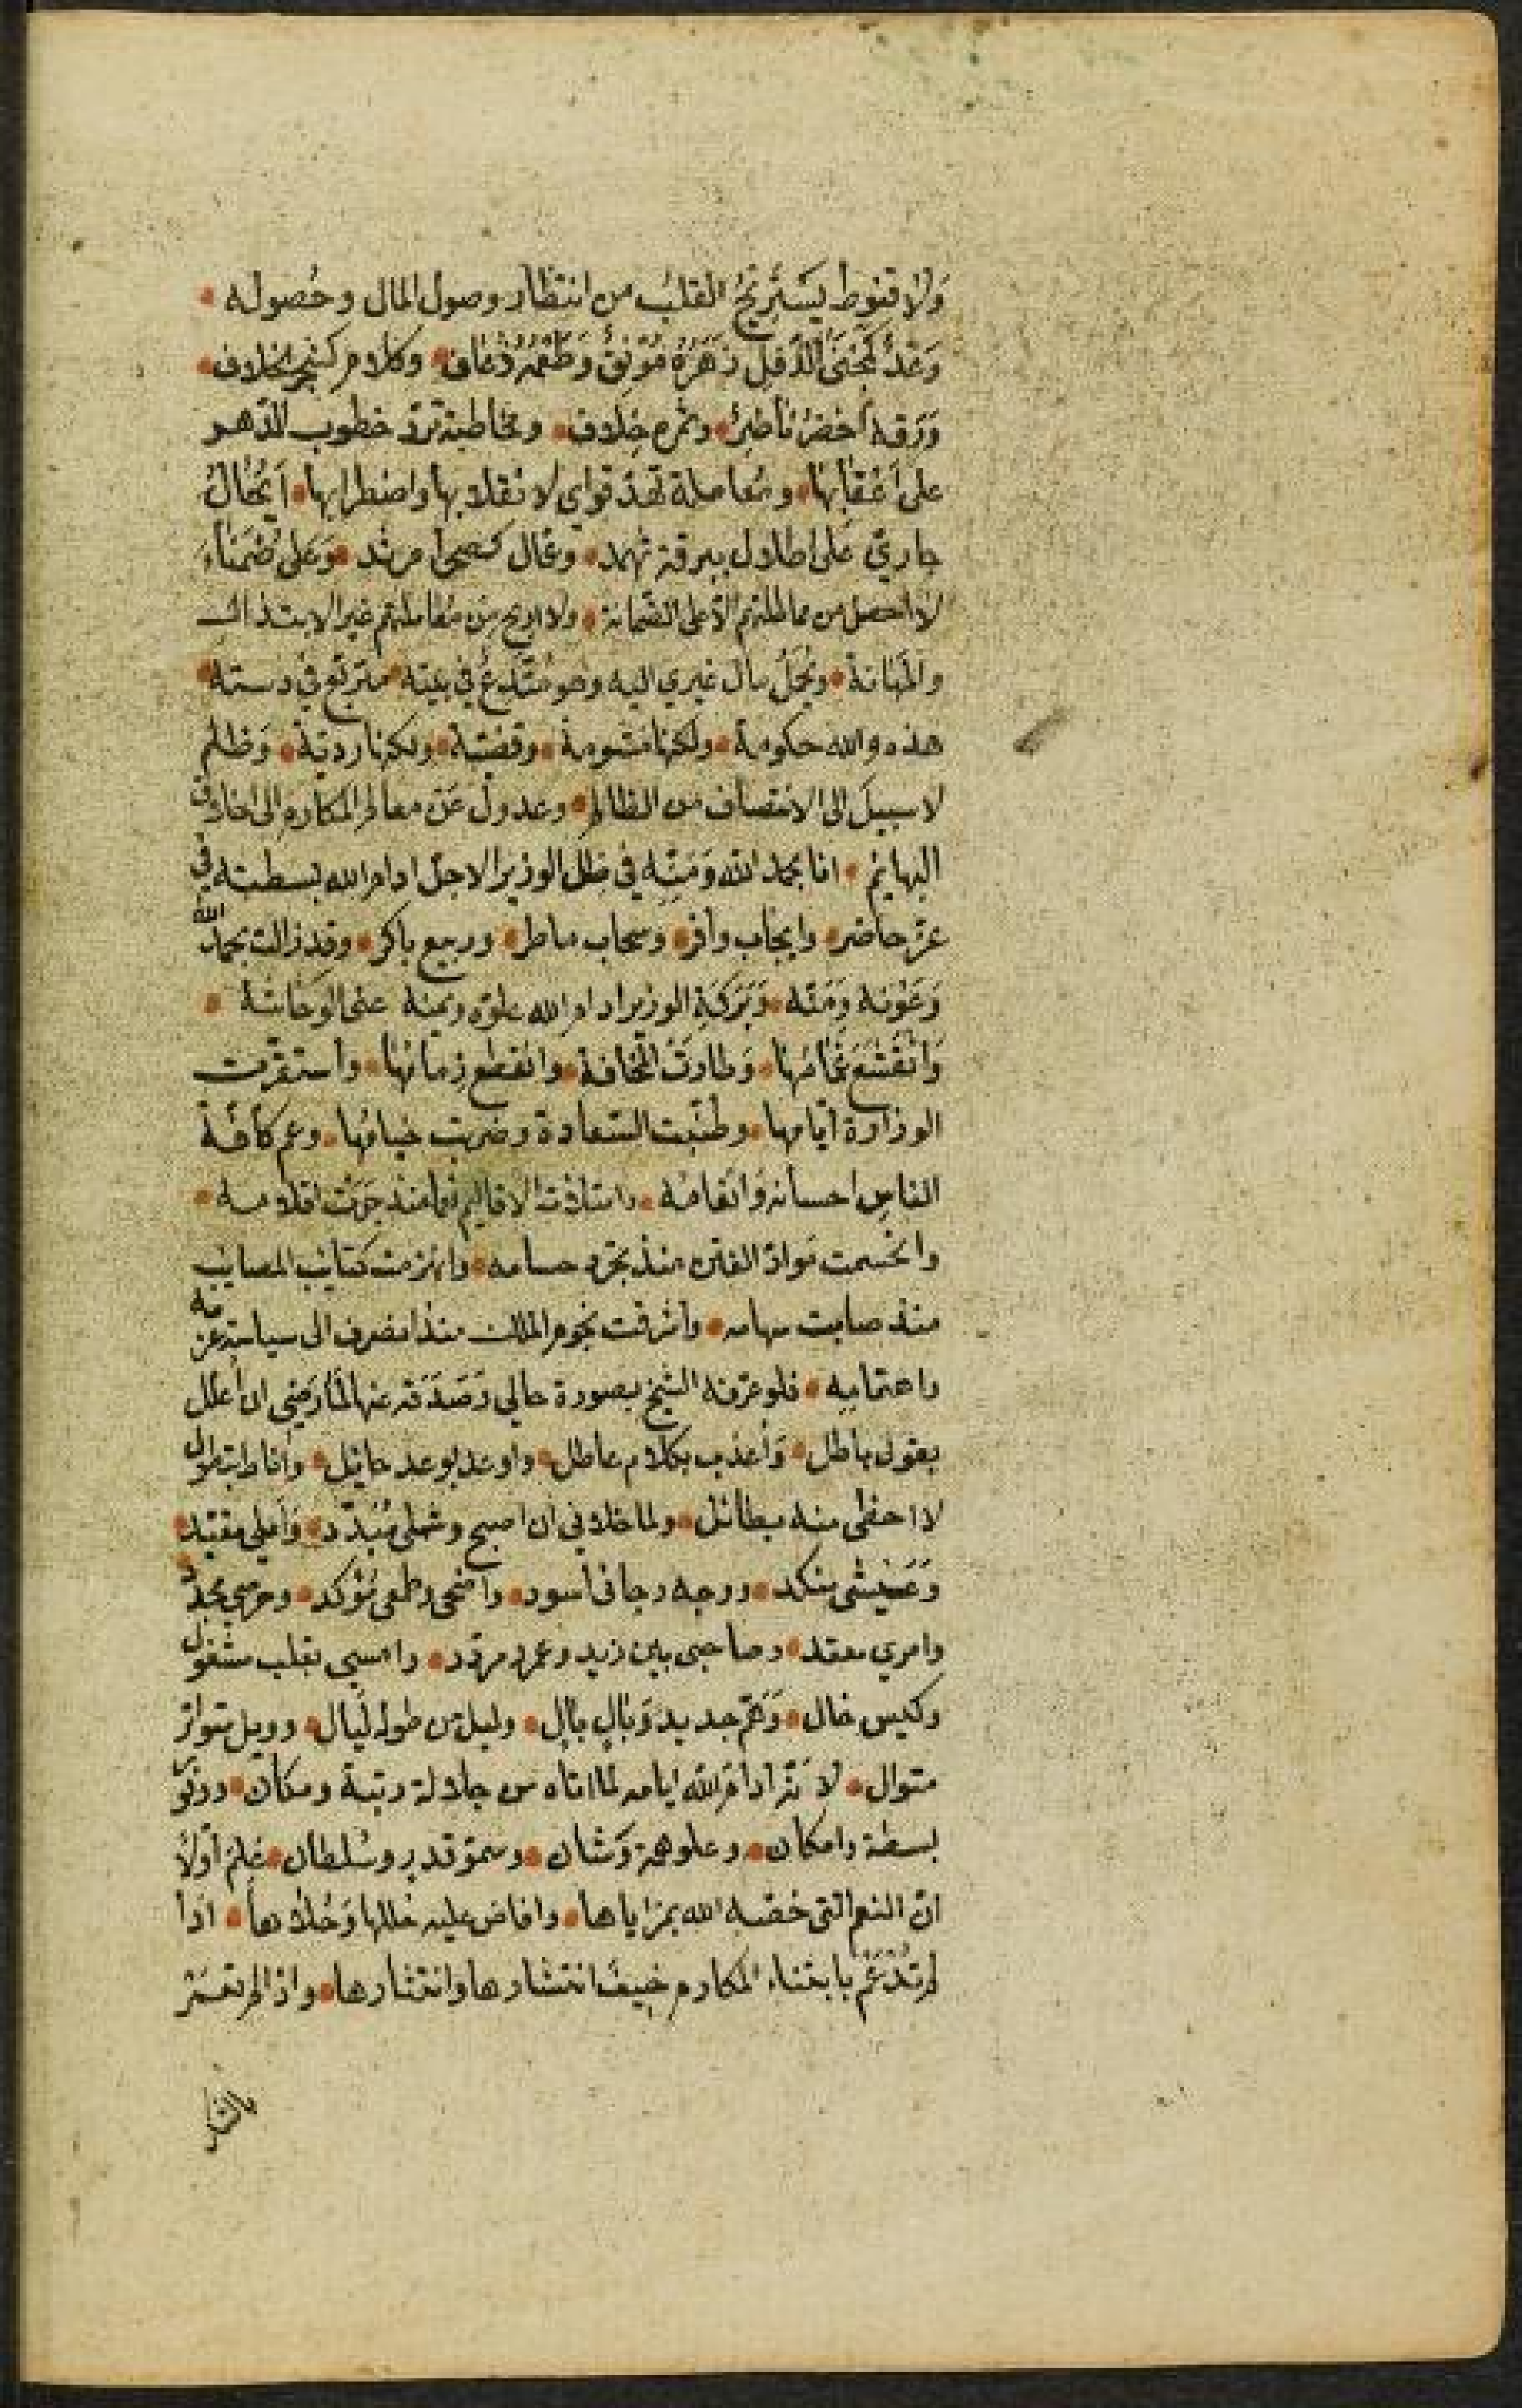 وَلا قنوط يَسْتَرِيحُ القلبُ من انتظار وصول المال وحُصوله
وَعْدٌ كمُجْتَنَى الدّفل زَهَرَهُ مُوْنِقٌ وَطَعْمُهُ ذُعَاف وكلام كشجر الخلاف
وَرَقه أخضرٌ ناضِرٌ وثمره خِلاف ومخاطبة تردّ خطوب الدّهر
على أعْقَابِها ومُعاملة تهدّ قواي لانقلابها واضطرابها أيُحَالُ
جاريّ عَلى اطلال ببرقة ثهمد وعمال كصحبى مرثد وَعَلى ضُمَنَاءَ
لا احصل من مماطلتهم الّا على الضّمانة ولا اربح من مُعاملتهم غير الابتذال
والمَهَانة ويُحْمَلُ مال غيري اليه وهو مُتَّدِعٌ في بيته متربّع في دسته
هذه والله حكومة ولكنها مشومة وقضيّة ولكنها رديّة وَظلم
لا سبيل الى الانتصاف من الظالم وعدول عَنْ معالم المكارم الى اخلاق
البهايم انا بحمد الله وَمَنّهِ في ظل الوزير الاجلّ ادام الله بسطته في
عزّ حاضر وايجاب وافر وسحاب ماطر وربيع باكر وقد زالت بحمد الله
وَعَوْنه وَمَنّه وَبَرَكَةِ الوزير ادام الله علوّه ويمنه عنى
وَانْقَشَعَ غَمَامُهَا وَطارَتْ المخافة وانقطع زمانها واستقرّت
الوزارة ايّامها وطنّبت السّعادة وضربت خيامُها وعمّ كافّة
الناسِ احسانه وَانعَامُه وامتلات الاقاليم نعما منذ جَرَتْ اقلامه
وانحسمت موادّ الفتن منذ تجرّد حسامه وانهزمت كتايب المصايب
منذ صابت سهامه واشرقت نجوم الملك منذ انصرف الى سياسته عزمه
واهتمامه فلو عرّفه الشيخ بصورة حالي وَصَدَقَه عنها لمَا رَضي ان أعلّل
بقول باطل وَأعذب بكلام عاطل واوعد بوعد حائل وأنا طب بقول
لا احظى منه بطائل ولما خلاني ان اصبح وشملي مُبَدّد وَأملي مقيّد
وَعَيْشى منكد ووجه رجائى أسود واضحى وطمعى مُؤكد وحرصي مجدّد
وامري معقد وصاحبى بين زيد وعمرو مردّد وامسي بقلب مشغول
وكيس خال وَهَمّ جديد وَبالٍ بالٍ وليل من طوله ليال وويل متواتر
متوال لانّه ادامَ الله ايامه لما اتاه من جلالة رتبة ومكان ووفور
بسطة وامكان وعلو همّة وَشان وسموّ قدر وسُلطان عَلِمَ أوّلاً
انّ النعم التى خصّه الله بمزاياها وافاض عليه حُللها وَحُلاها اذا
لم تُدْعَمْ بابتناء المكارم خيف انتشارها وانتثارها واذا لم تعمَّر